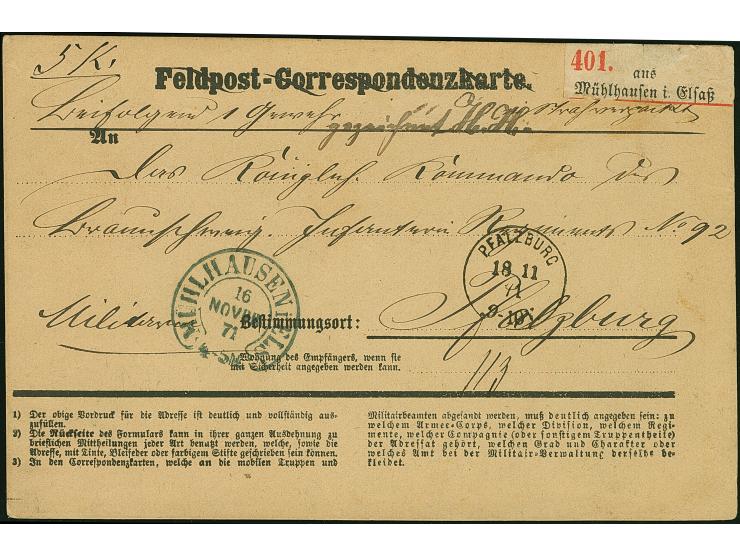 5 K.
401. aus
Mühlhausen i. Elsaß
Feldpost-Correspondenzkarte.
Beifolgend 1 Gewehr in Stroh verpackt
gezeichnet
An
Das Königlich. Kommando des
Braunschweig. Infanterie Regiments No 92
PFALZBURG
18 11
71
MÜHLHAUSEN i. ELS.
16
NOVBR
71
Militaria
Bestimmungsort: Pfalzburg
Wohnung des Empfängers, wenn sie
mit Sicherheit angegeben werden kann.
113
1) Der obige Vordruck für die Adresse ist deutlich und vollständig aus-
zufüllen.
2) Die Rückseite des Formulars kann in ihrer ganzen Ausdehnung zu
brieflichen Mittheilungen jeder Art benutzt werden, welche, sowie die
Adresse, mit Tinte, Bleifeder oder farbigem Stifte geschrieben sein können.
3) In den Correspondenzkarten, welche an die mobilen Truppen und
Militairbeamten abgesandt werden, muß deutlich angegeben sein: zu
welchem Armee-Corps, welcher Division, welchem Regi-
mente, welcher Compagnie (oder sonstigem Truppentheile)
der Adressat gehört, welchen Grad und Charakter oder
welches Amt bei der Militair-Verwaltung derselbe be-
kleidet.